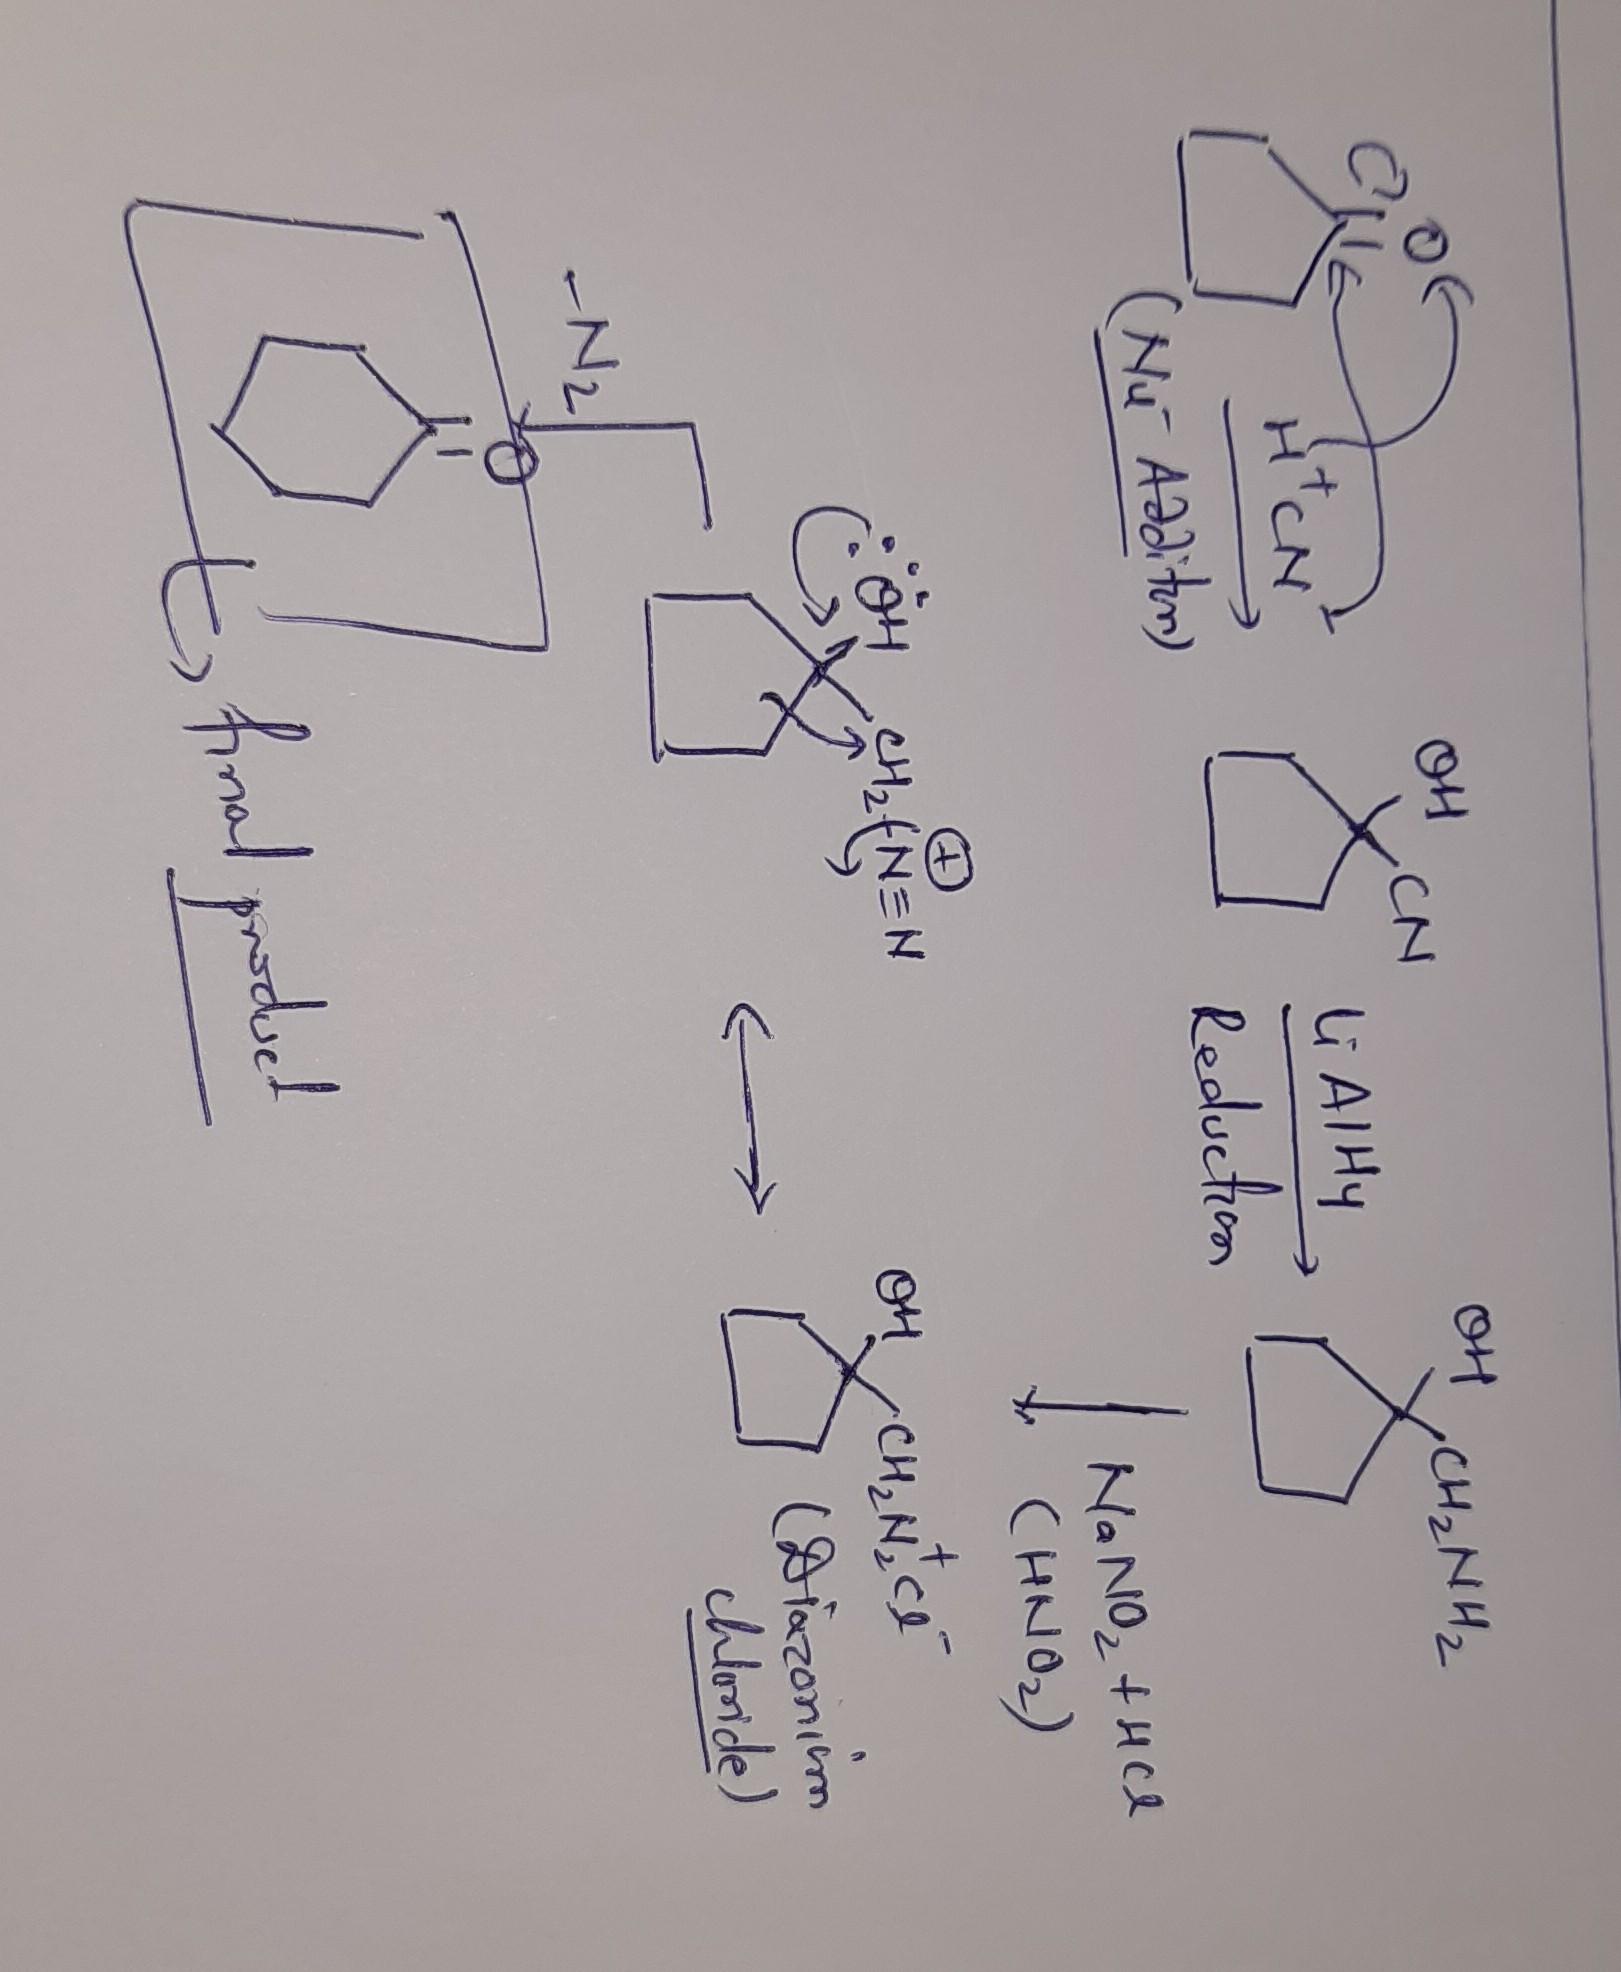 O
H⁺ CN⁻
(Nu⁻ Addition)
OH
CN
LiAlH4
Reduction
OH
CH2NH2
NaNO2 + HCl
(HNO2)
:ÖH
CH2-N≡N
⊕
OH
CH2N2⁺Cl⁻
(Diazonium
chloride)
-N2
O
final product